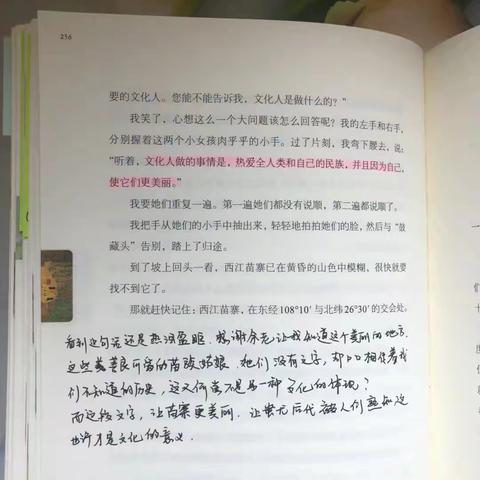 256
要的文化人。您能不能告诉我，文化人是做什么的？”
我笑了，心想这么一个大问题该怎么回答呢？我的左手和右手，
分别握着这两个小女孩肉乎乎的小手。过了片刻，我弯下腰去，说：
“听着，文化人做的事情是，热爱全人类和自己的民族，并且因为自己，
使它们更美丽。”
我要她们重复一遍。第一遍她们都没有说顺，第二遍都说顺了。
我把手从她们的小手中抽出来，轻轻地拍拍她们的脸，然后与“鼓
藏头”告别，踏上了归途。
到了坡上回头一看，西江苗寨已在黄昏的山色中模糊，很快就要
找不到它了。
那就赶快记住：西江苗寨，在东经108°10′与北纬26°30′的交会处。
看到这句话还是热泪盈眶，好谢余先让我知道这个美丽的地方
这些美善良可爱的苗
姑娘，她们没有文字，却口口相传着我
们不知道的历史，这又何尝不是另一种文化的体现？
而这些文字，让苗寨更美丽，让
后代
人们熟知这
也许才是文化的意义．